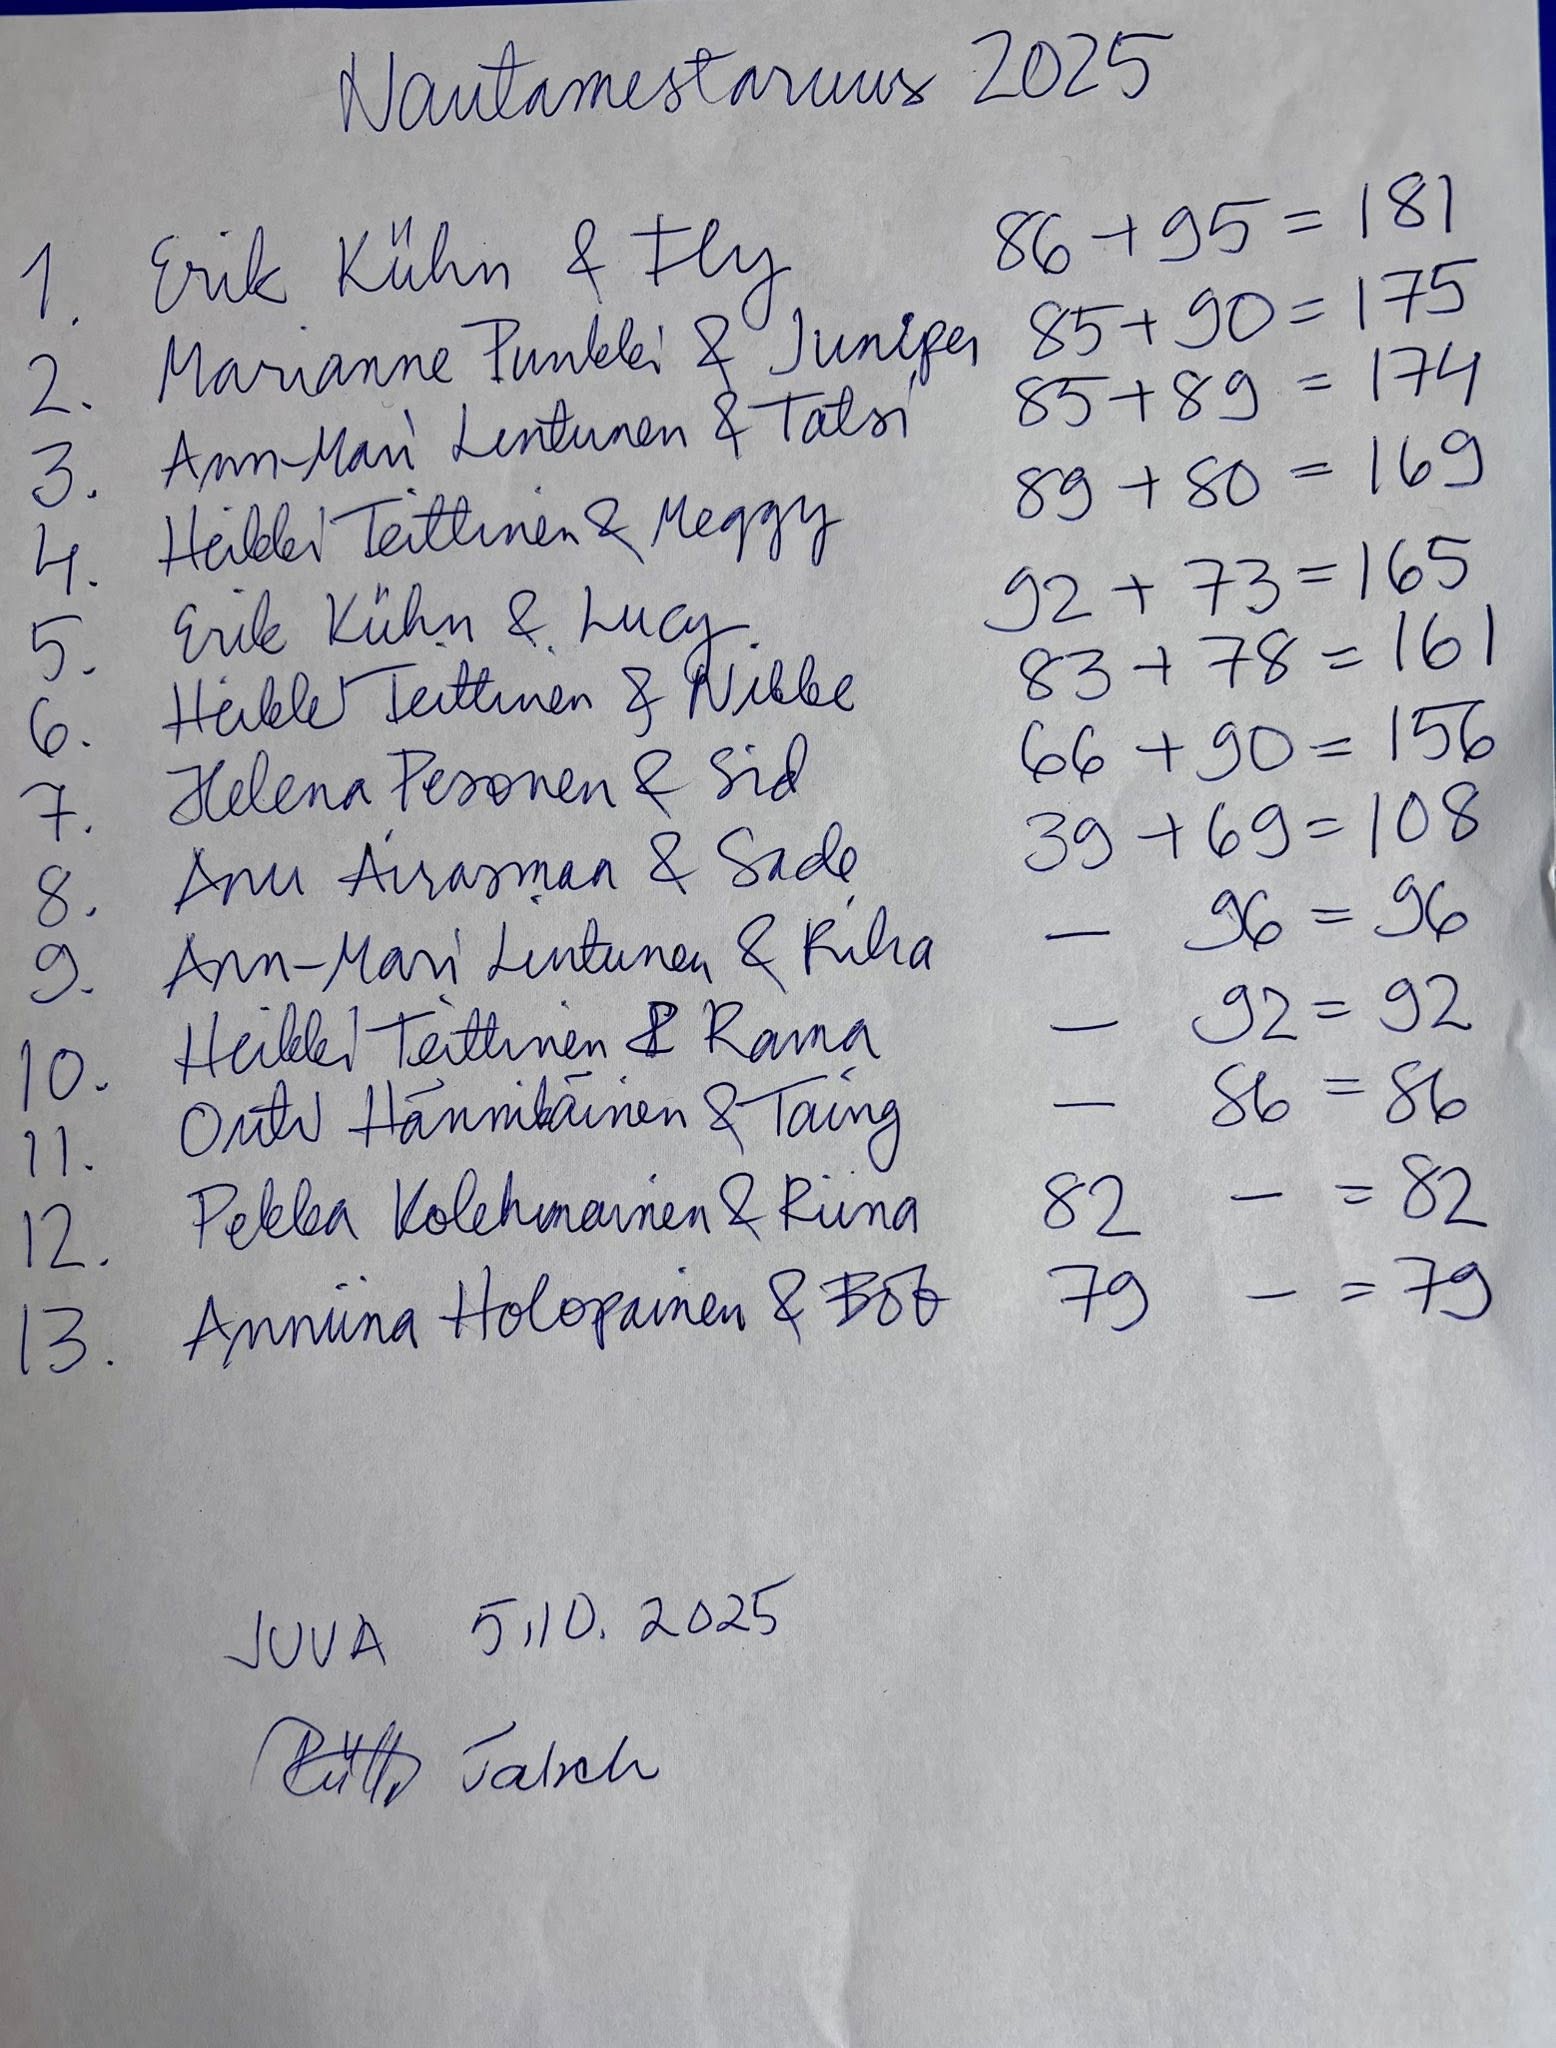 Nautamestaruus 2025
1. Erik Kühn & Fly 86 + 95 = 181
2. Marianne Punkki & Juniper 85 + 90 = 175
3. Ann-Mari Lintunen & Tatsi 85 + 89 = 174
4. Heikki Teittinen & Meggy 89 + 80 = 169
5. Erik Kühn & Lucy 92 + 73 = 165
6. Heikki Teittinen & Nikke 83 + 78 = 161
7. Helena Pesonen & Sid 66 + 90 = 156
8. Anu Airasmaa & Sade 39 + 69 = 108
9. Ann-Mari Lintunen & — 96 = 96
10. Heikki Teittinen & Rama — 92 = 92
11. Outi Hännikäinen & Taing — 86 = 86
12. Pekka Kolehmainen & Riina 82 — = 82
13. Anniina Holopainen & Bob 79 — = 79
JUVA 5.10.2025